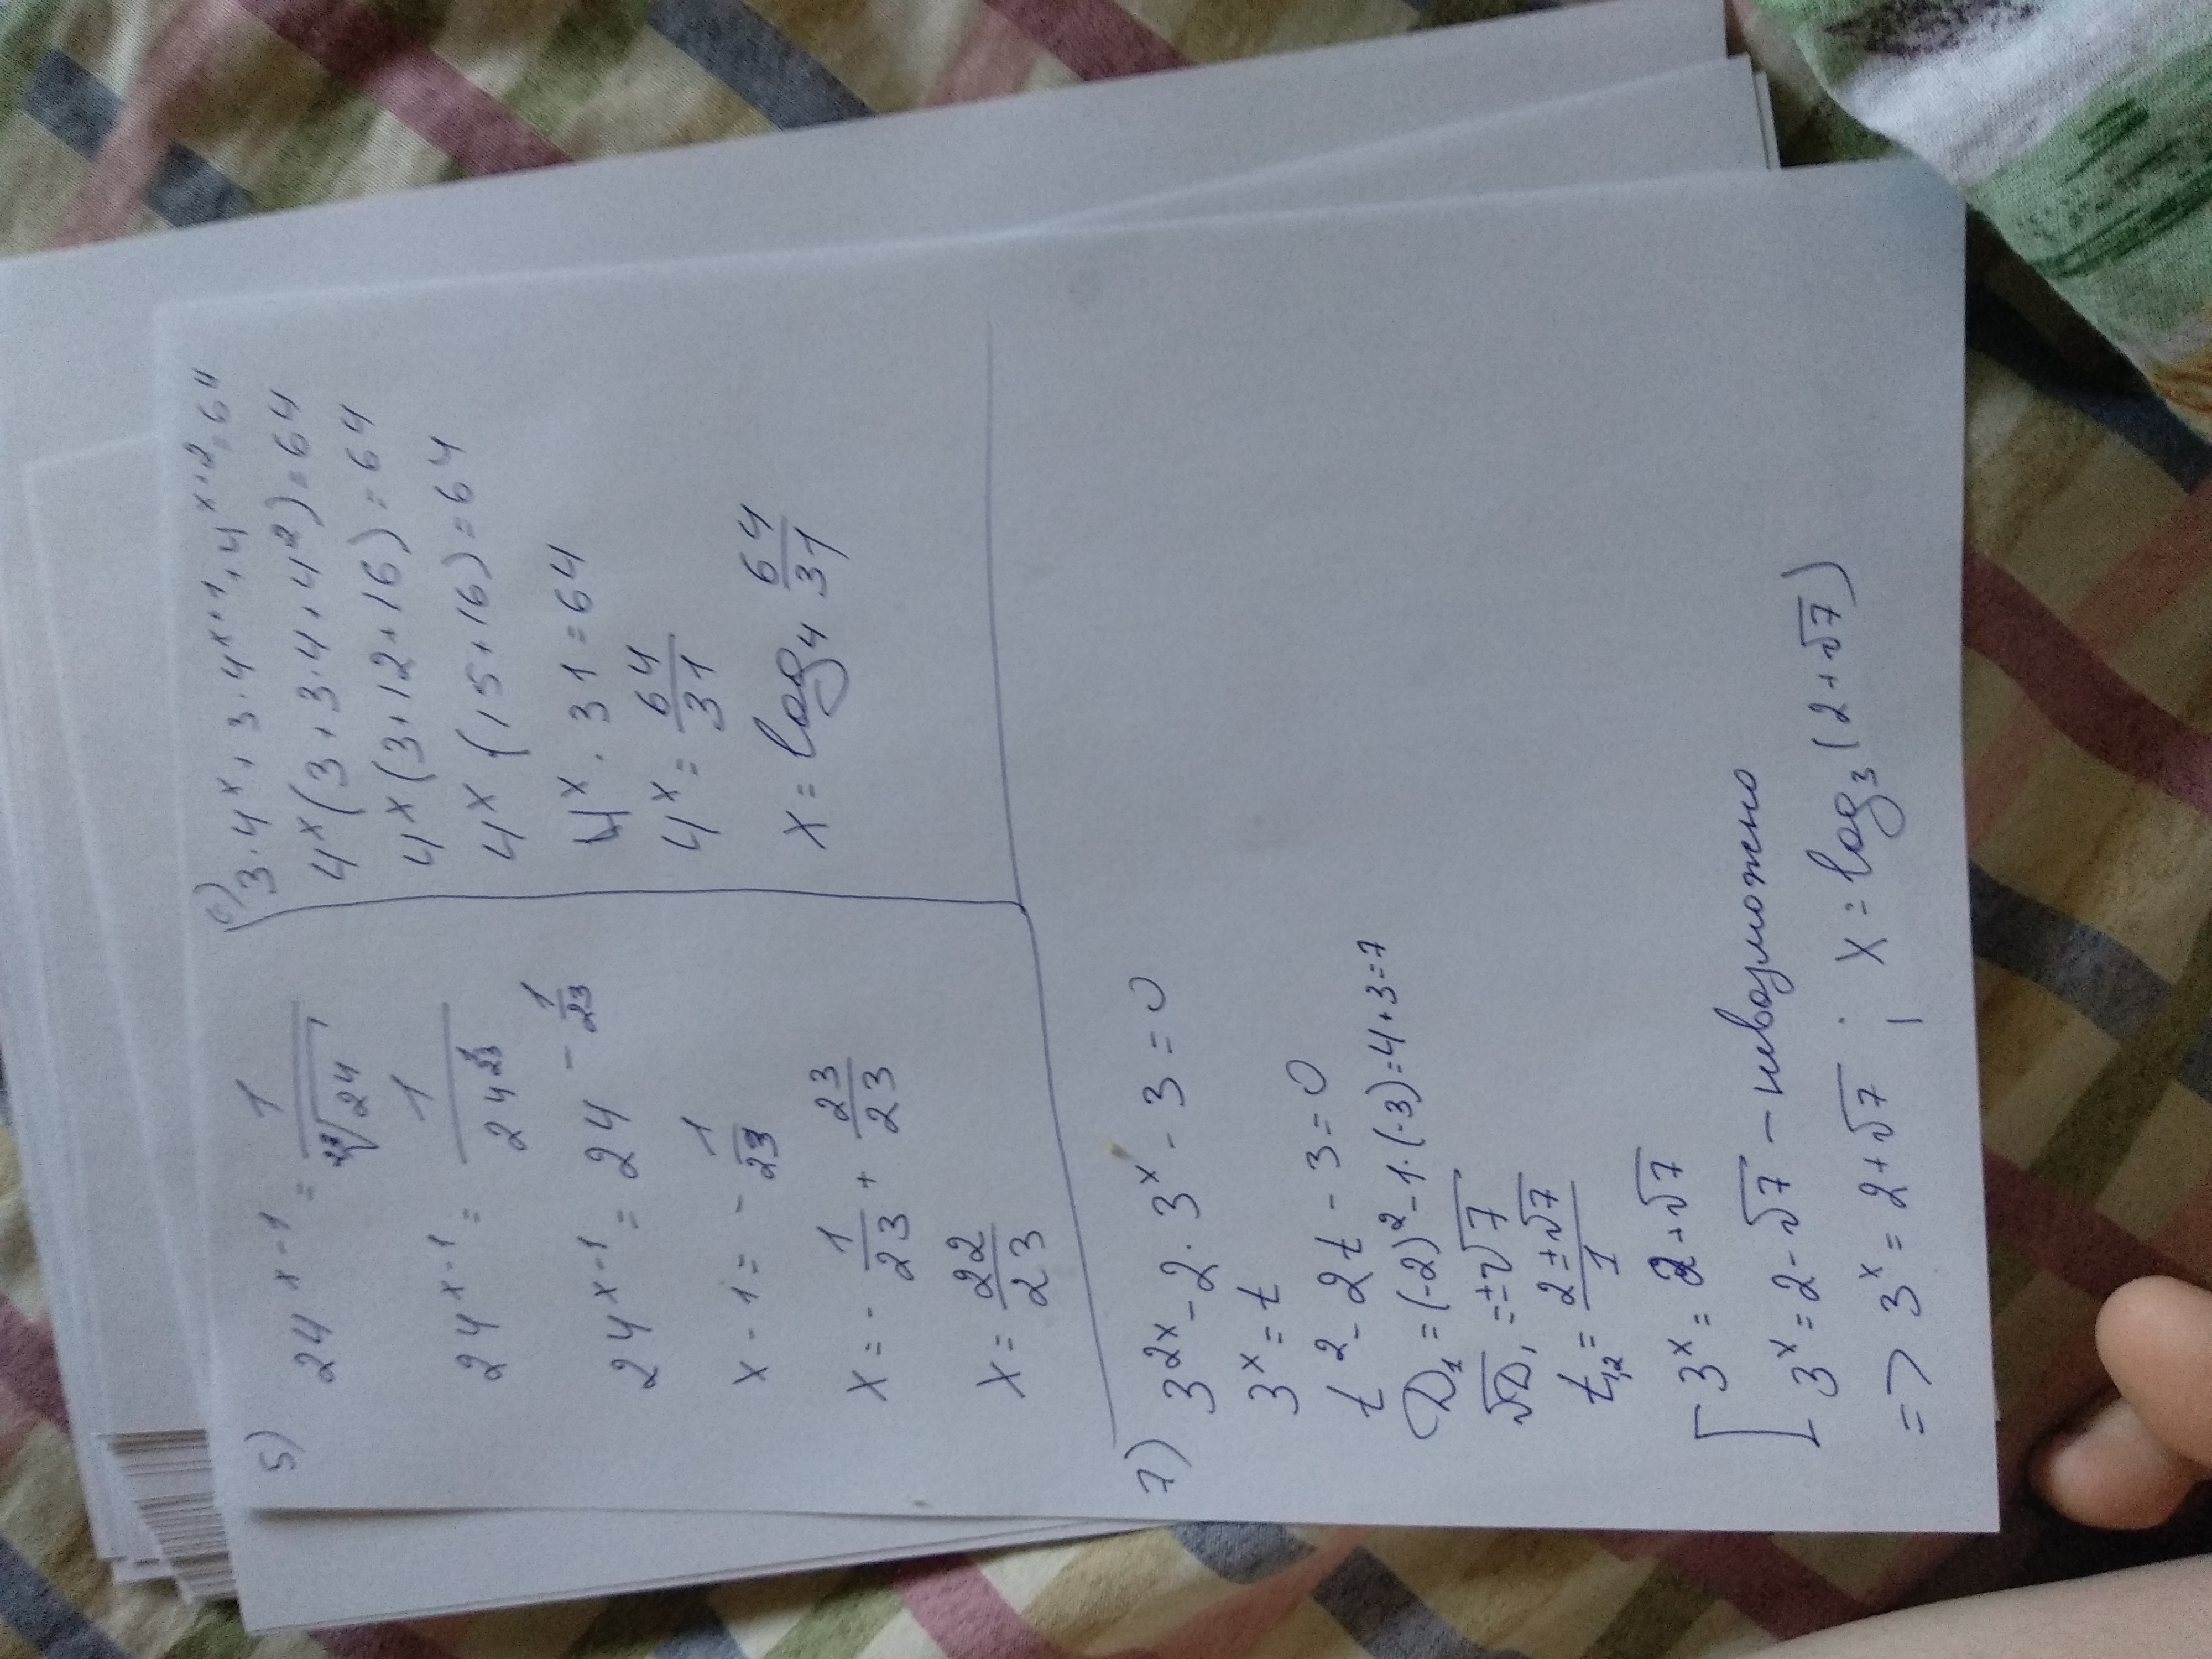 5) 24^(x-1) = 1/²³√24
24^(x-1) = 1/24^(1/23)
24^(x-1) = 24^(-1/23)
x - 1 = - 1/23
x = - 1/23 + 23/23
x = 22/23
6) 3·4^x + 3·4^(x+1) + 4^(x+2) = 64
4^x (3 + 3·4 + 4²) = 64
4^x (3 + 12 + 16) = 64
4^x (15 + 16) = 64
4^x · 31 = 64
4^x = 64/31
x = log₄ 64/31
7) 3^(2x) - 2·3^x - 3 = 0
3^x = t
t² - 2t - 3 = 0
D₁ = (-2)² - 1·(-3) = 4 + 3 = 7
√D₁ = ±√7
t₁,₂ = (2 ± √7)/1
[ 3^x = 2 + √7
3^x = 2 - √7 - невозможно
=> 3^x = 2 + √7 ; x = log₃ (2 + √7)